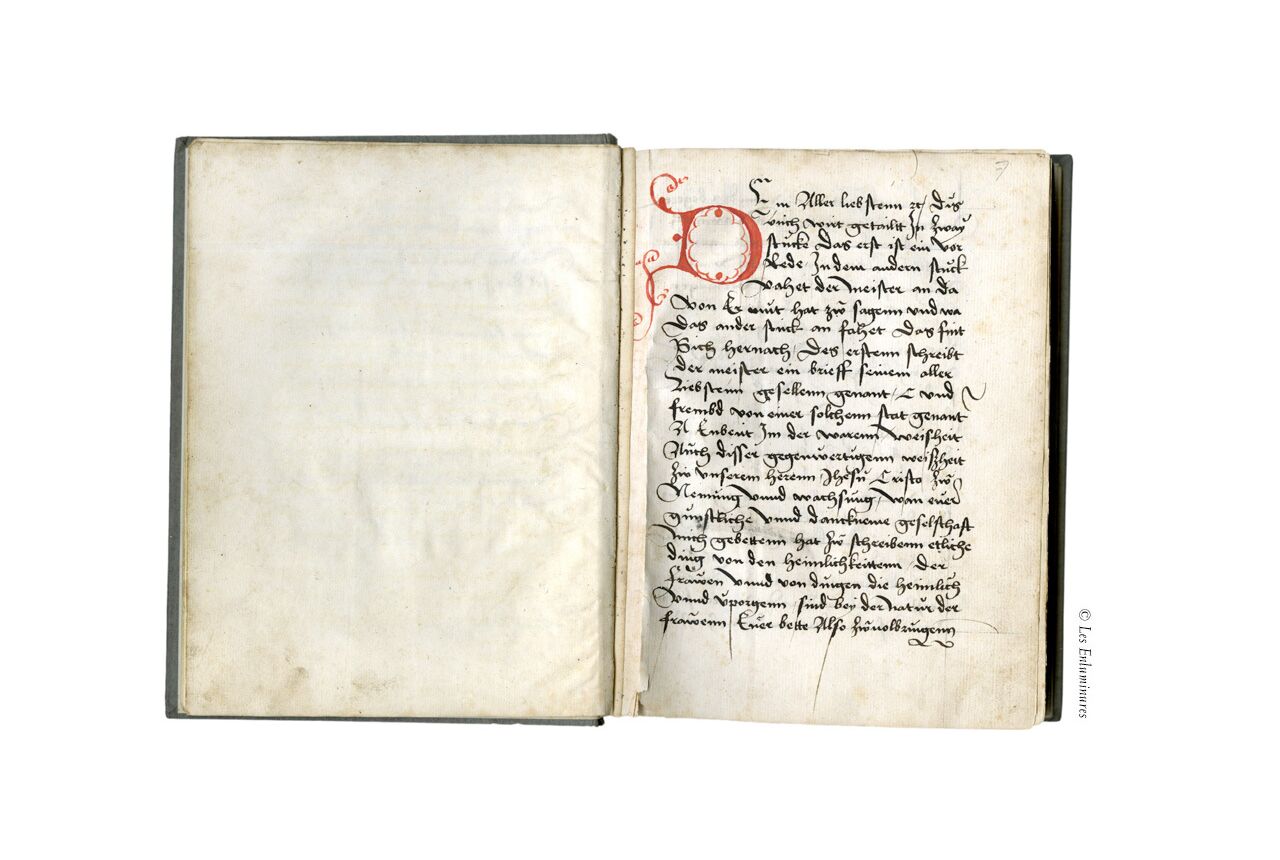 7
Em Aller liebstenn ꝛc / Dis
buch wirt getailtt In zway
stucke Das erst ist ein vor
Rede / In dem andern stuck
vahet der meister an da
von Er mut hat zw sagenn vnd wa
Das ander stuck an fahet Das fint
Sich hernach / Des erstenn schreibt
der meister ein brieff seinem aller
Liebstenn gesellenn genant / C vnd
frembd von einer solchenn stat genant
A Enbeut Im der warenn weisheit
Auch disser gegenwertigenn weißheit
zw vnserem herenn Jhesu Cristo zw
Nemung vnnd wachsung / wan euer
gunstliche vnnd danckneme geselschaft
mich gebettenn hat zw schreibenn etliche
ding von den heimlichkeittenn / der
frawen vnnd von dingen die heimlich
vnnd vporgenn / sind bey der natur der
frawenn / Euer bette Also zwuolbrungenn
© Les Enluminures